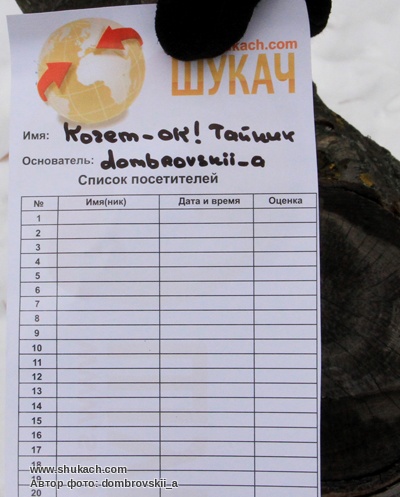 shukach.com
ШУКАЧ
Имя: Козет-ок! Тайник
Основатель: dombrovskii_a
Список посетителей
№ Имя(ник) Дата и время Оценка
1
2
3
4
5
6
7
8
9
10
11
12
13
14
15
16
17
18
19
20
www.shukach.com
Автор фото: dombrovskii_a